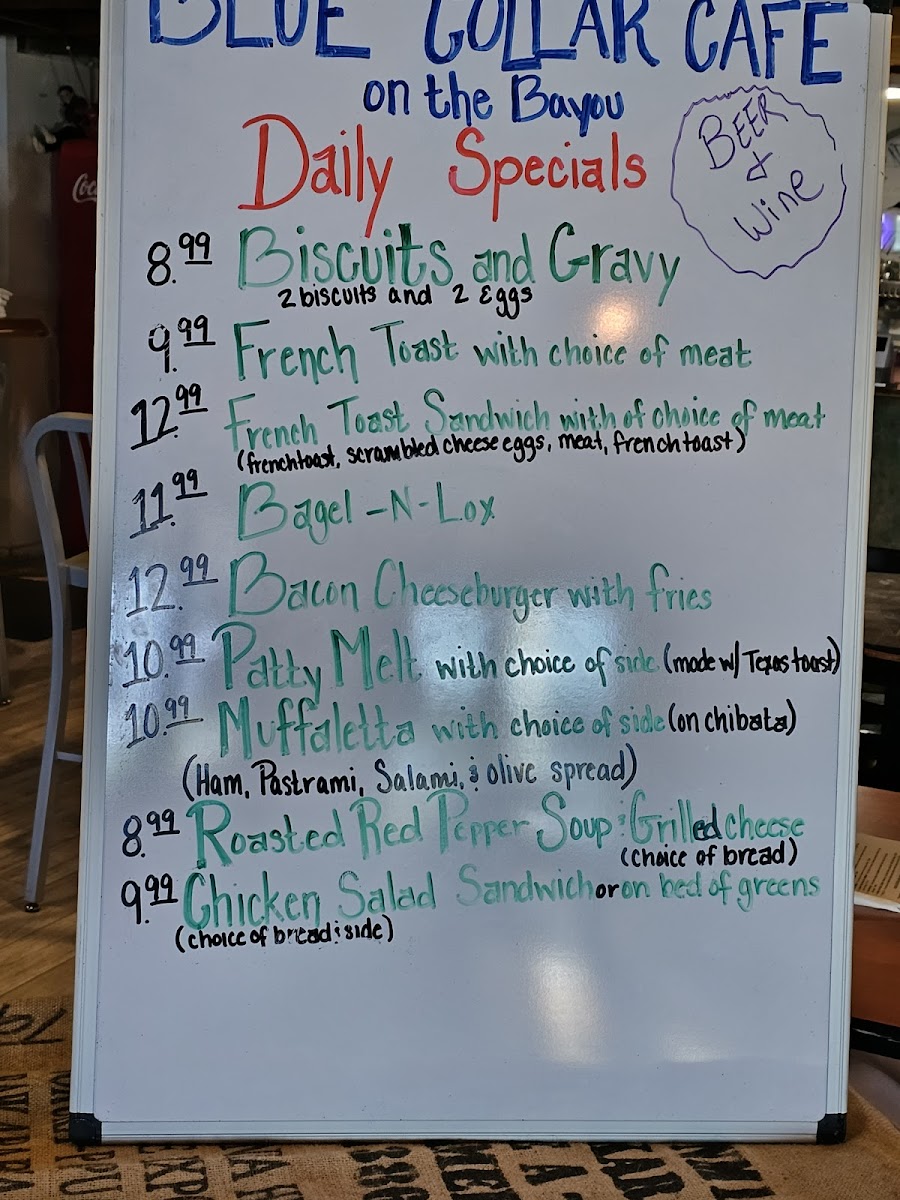 BLUE COLLAR CAFE
on the Bayou
BEER
&
WINE
Daily Specials
8.99 Biscuits and Gravy
2 biscuits and 2 Eggs
9.99 French Toast with choice of meat
12.99 French Toast Sandwich with of choice of meat
(frenchtoast, scrambled cheese eggs, meat, frenchtoast)
11.99 Bagel -N- Lox
12.99 Bacon Cheeseburger with fries
10.99 Patty Melt with choice of side (made w/ Texas toast)
10.99 Muffaletta with choice of side (on chibata)
(Ham, Pastrami, Salami, & olive spread)
8.99 Roasted Red Pepper Soup & Grilled cheese
(choice of bread)
9.99 Chicken Salad Sandwich or on bed of greens
(choice of bread & side)
Coca